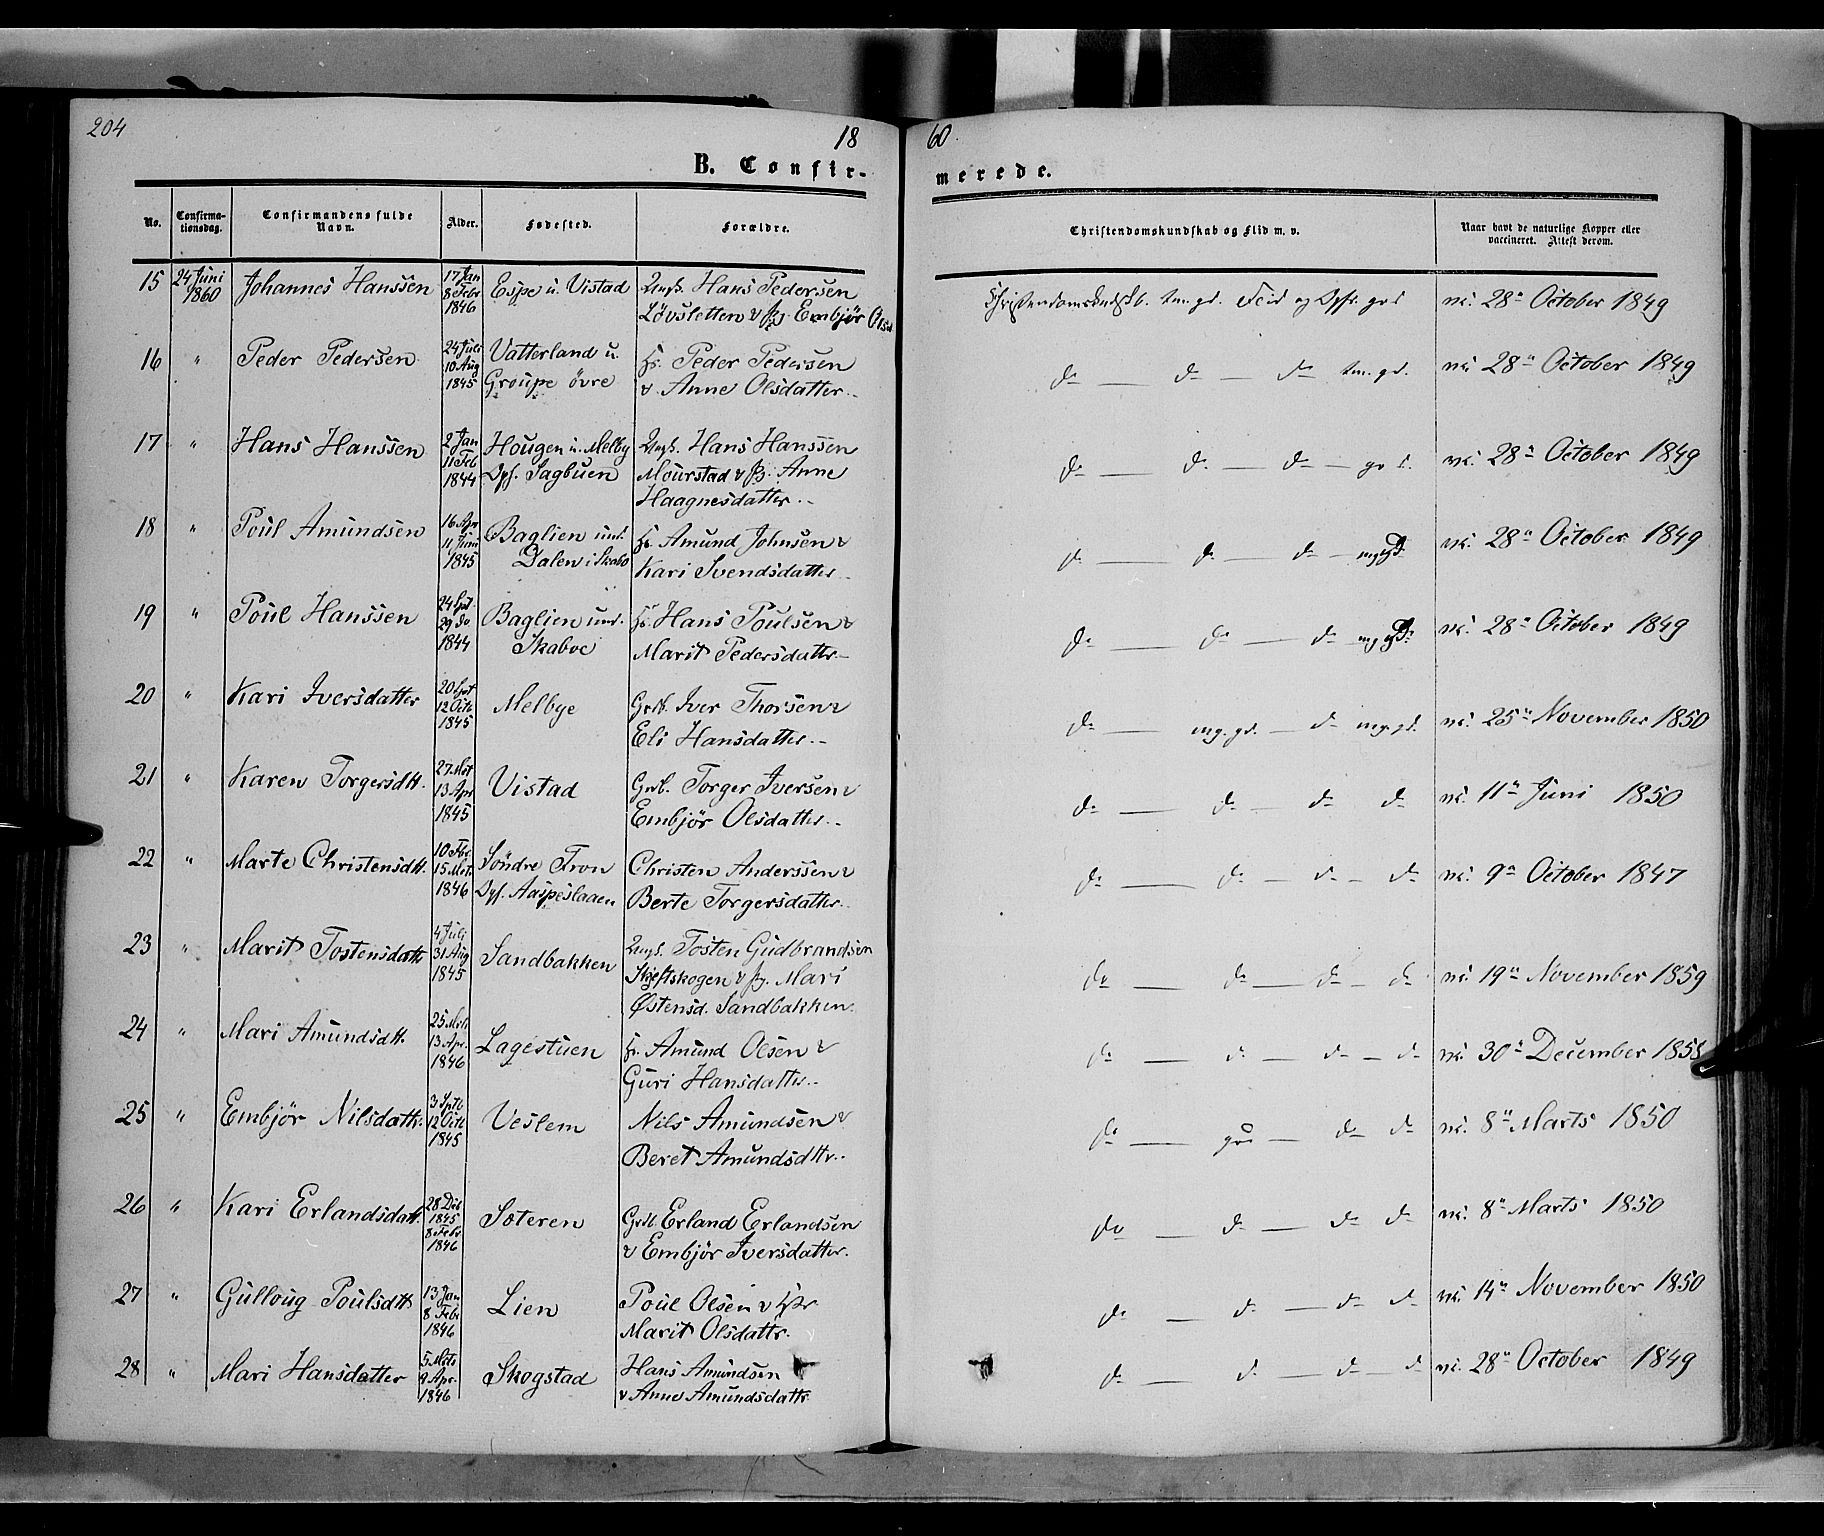 204
18
60.
B. Confir-
merede.
No.
Confirma-
tionsdag.
Confirmandens fulde
Navn.
Alder.
Fødested.
Forældre.
Christendomskundskab og Flid m. v.
Naar havt de naturlige Kopper eller
vaccineret. Attest derom.
15 24 Juni 1860 Johannes Hanssen 17 Jan 8 Febr 1846 Espe u. Vistad Ungk. Hans Pedersen
Lövsletten & pg. Embjör Olsd
vc. 28n October 1849
16 " Peder Pedersen 24 Juli 10 Aug 1845 Vatterland u. Groupe övre Peder Pedersen
& Anne Olsdatter..
do — do — do tm. gd. vc. 28n October 1849
17 " Hans Hanssen 2 Jan 11 Feb 1844 Hougen u. Melby Opf. Sagbuen Ungk. Hans Hanssen
Mourstad & pg. Anne
Haagnesdatter..
do — do — do — vc. 28n October 1849
18 " Poul Amundsen 16 Apr 11 Juni 1845 Baglien und. Dalen i Skabo Amund Johnsen &
Kari Svendsdatter..
do — do — do — vc. 28n October 1849
19 " Poul Hanssen 24 Spt. 29 do 1844 Baglien und. Skaboe Hans Poulsen &
Marit Pedersdatter..
do — do — do vc. 28n October 1849
20 " Kari Iversdatter 20 Spt 12 Octb 1845 Melbye Grdb. Iver Thorsen &
Eli Hansdatter..
do — mg. gd. — do mg. gd. vc. 25n November 1850
21 " Karen Torgersdtt. 27 Mrt 13 Apr 1845 Vistad Grdb. Torger Iversen &
Embjör Olsdatter..
do — do — do do vc. 11n Juni 1850
22 " Marte Christensdtt. 10 Fbr 15 Mrt. 1846 Söndre Fron Opf. Aaspeslaaen Christen Anderssen &
Berte Torgersdatter..
do — do — do — do vc. 9n October 1847
23 " Marit Tostensdatt. 4 Juli 31 Aug 1845 Sandbakken Ungk. Tosten Gudbrandsen
Skjeftskogen & pg. Mari
Østensd. Sandbakken.
do — do — do — do vc. 19n November 1859
24 " Mari Amundsdtt. 25 Mrts 13 Apr. 1846 Lagestuen Amund Olsen &
Guri Hansdatter..
do — do — do — do vc. 30n December
25 " Embjör Nilsdatt. 3 Sptb 12 Octb 1845 Veslem Nils Amundsen &
Beret Amundsdttr..
do — — do do vc. 8n Marts 1850
26 " Kari Erlandsdatt. 28 Dcb 1845 8 Febr 1846 Soteren Grdb. Erland Erlandsen
& Embjör Iversdatter.
do — do — do do vc. 8n Marts 1850
27 " Gulloug Poulsdtt 13 Jan 8 Febr 1846 Lien Poul Olsen &
Marit Olsdattr.
do — do — do do vc. 14n November 1850
28 " Mari Hansdatter 5 Mrts 9 Apr. 1846 Skogstad Hans Amundsen
& Anne Amundsdattr
do — do — do — do vc. 28n October 1849